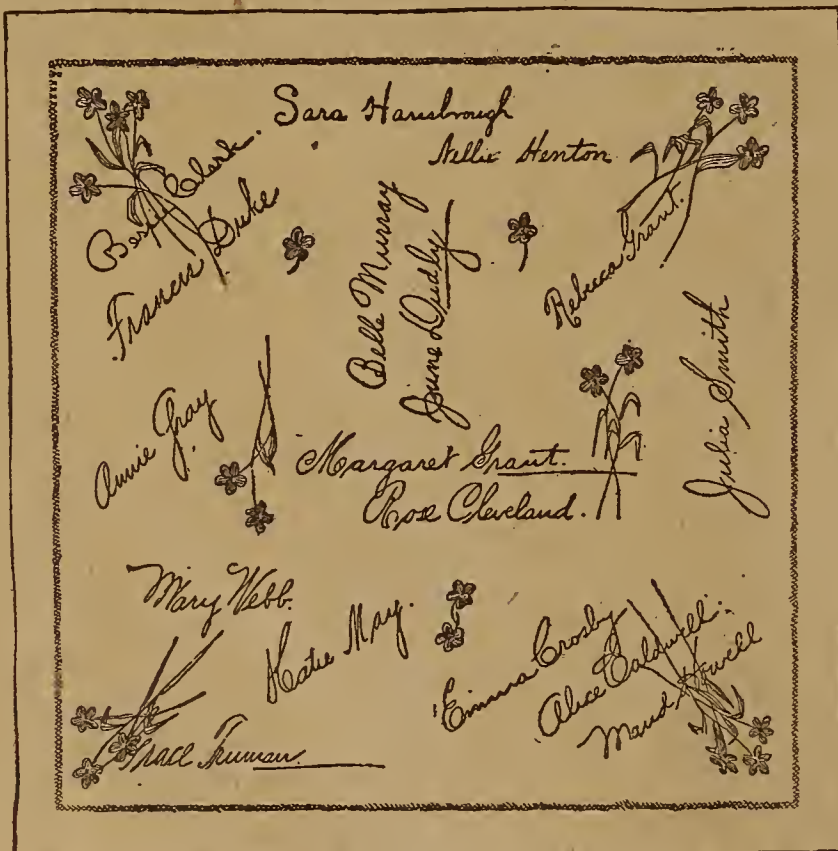 Sara Hansbrough
Nellie Henton
Clark.
Francis Duke
Belle Murray
June Dudly
Rebecca Grant.
Annie Gray
Julia Smith
Margaret Grant.
Rose Cleveland.
Mary Webb.
Katie May.
Emma Crosby
Alice Caldwell.
Maud Howell
Grace Truman.